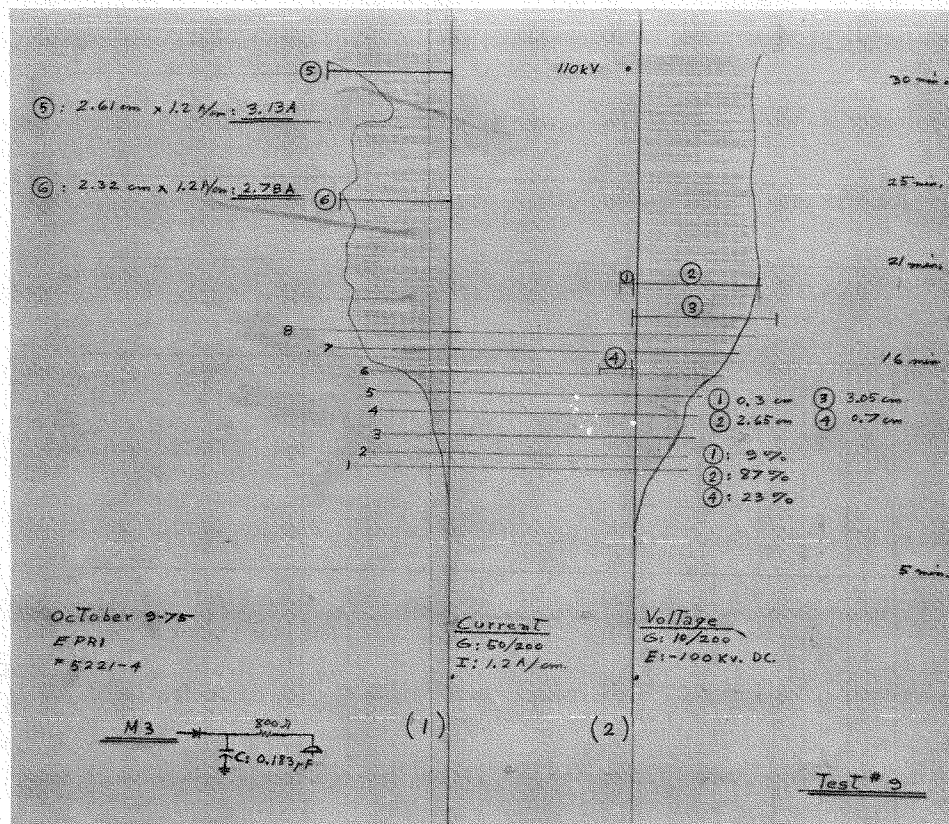 110kV
30 min.
⑤
⑤: 2.61 cm x 1.2 A/cm: 3.13A
25 min.
⑥: 2.32 cm x 1.2 A/cm: 2.78A
⑥
21 min.
① ②
③
8
7
④
16 min
6
5
① 0.3 cm ③ 3.05 cm
4
② 2.65 cm ④ 0.7 cm
3
①: 9%
2
②: 87%
1
④: 23%
5 min.
October 9-75
EPRI
# 5221-4
Current
G: 50/200
I: 1.2 A/cm.
Voltage
G: 10/200
E: -100 Kv. DC.
M3
800Ω
C: 0.183µF
(1)
(2)
Test # 9